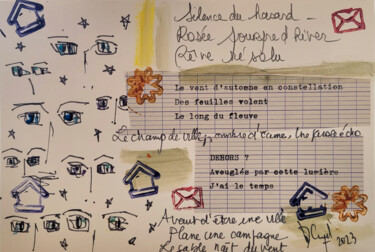 Silence du hasard -
Rosée
Rêve
Le vent d'automne en constellation
Des feuilles volent
Le long du fleuve
Le champ de ville,
DEHORS ?
Aveuglés par cette lumière
J'ai le temps
Avant d'être une ville
Plane une campagne
Le sable naît du vent
2023